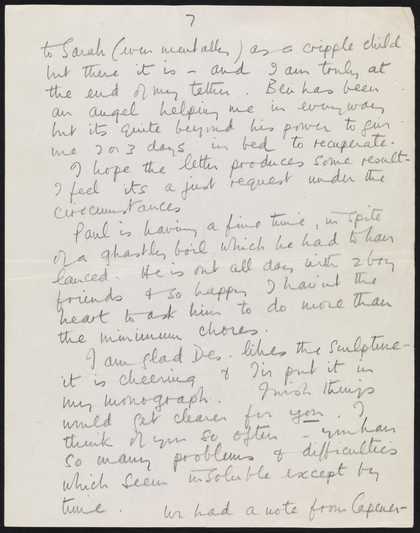 7
to Sarah (even mentally) as a cripple child
but there it is – and I am truly at
the end of my tether. Ben has been
an angel helping me in every way
but its quite beyond his power to give
me 2 or 3 days in bed to recuperate.
I hope the letter produces some result –
I feel its a just request under the
circumstances
Paul is having a fine time, in spite
of a ghastly boil which he had to have
lanced. He is out all day with 2 boy
friends & so happy I havent the
heart to ask him to do more than
the minimum chores.
I am glad Des. likes the sculpture –
it is cheering & I'll put it in
my monograph. I wish things
would get clearer for you. I
think of you so often – you have
so many problems & difficulties
which seem insoluble except by
time. We had a note from Capener –